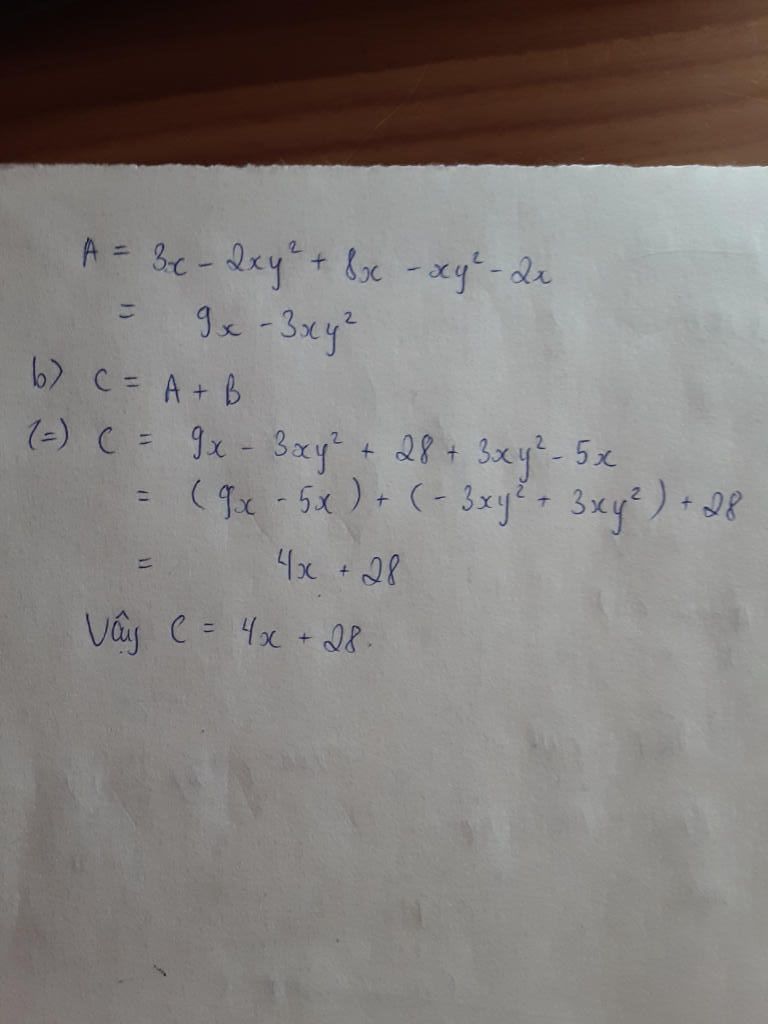 A = 3x - 2xy² + 8x - xy² - 2x
= 9x - 3xy²
b) C = A + B
(=) C = 9x - 3xy² + 28 + 3xy² - 5x
= (9x - 5x) + (- 3xy² + 3xy²) + 28
= 4x + 28
Vậy C = 4x + 28.